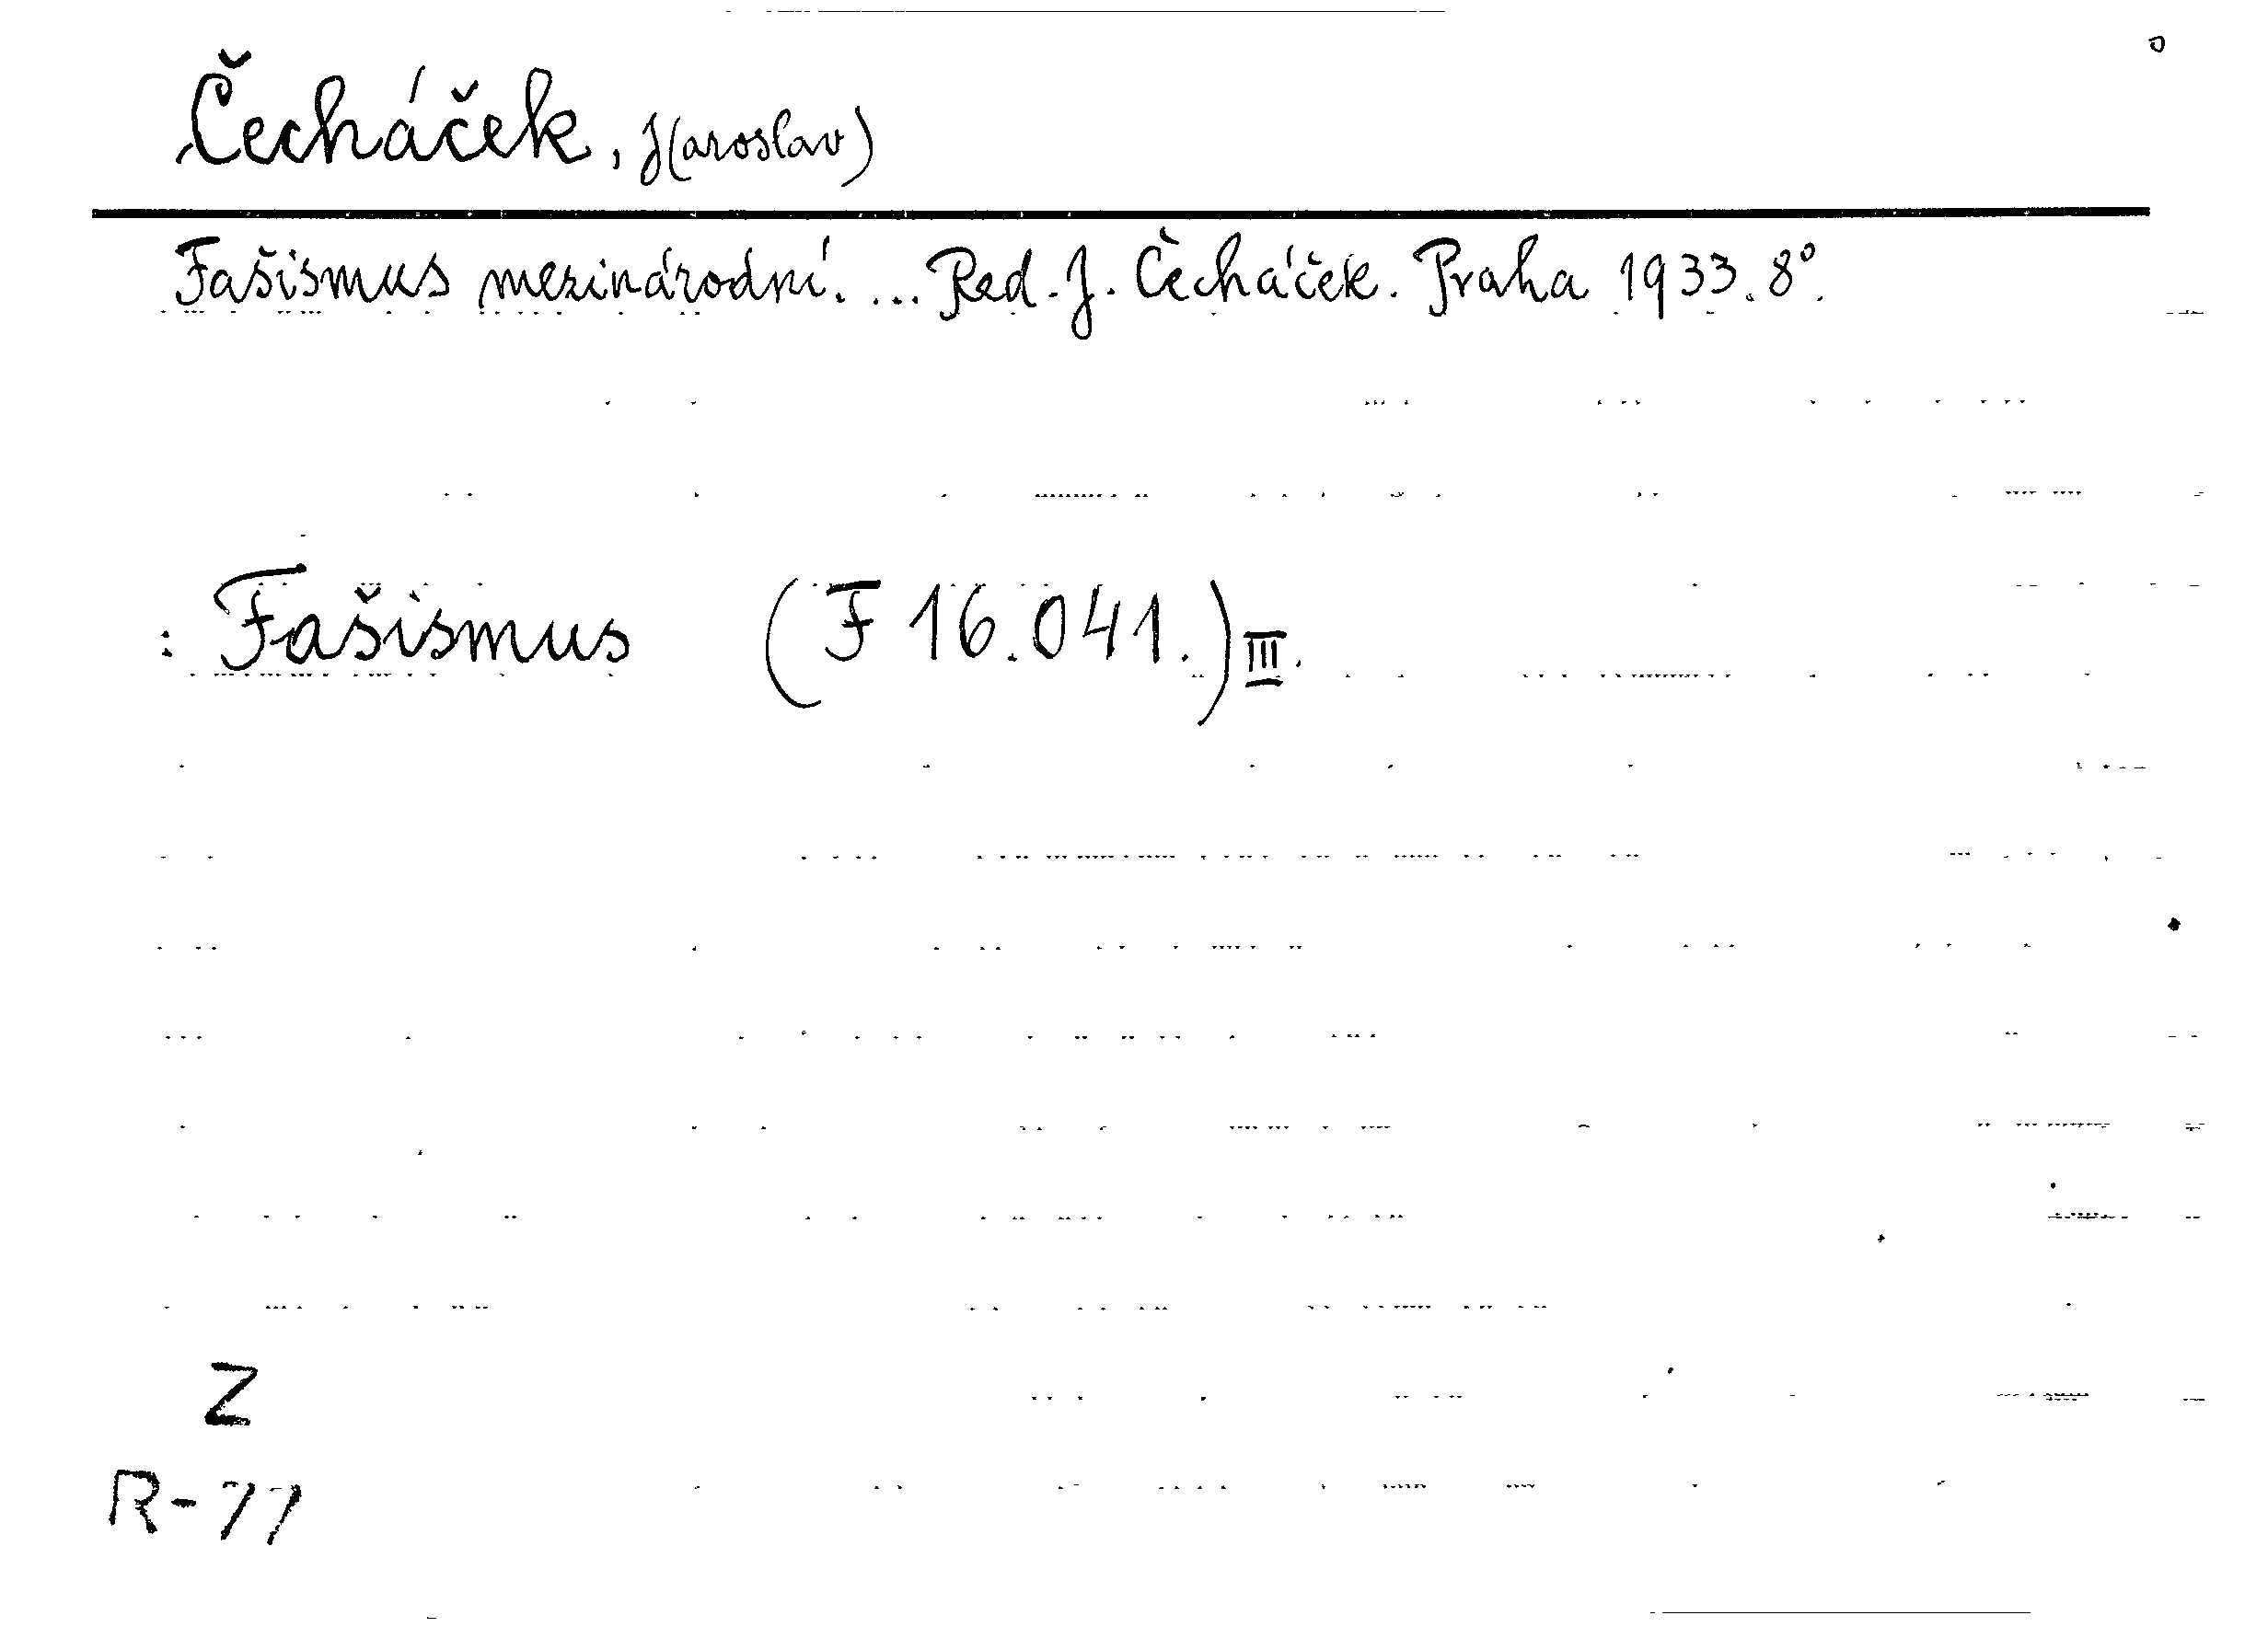 Čecháček, J(aroslav)
Fašismus mezinárodní. ... Red. J. Čecháček. Praha 1933. 8°.
: Fašismus (F 16.041.) III.
Z
R-77